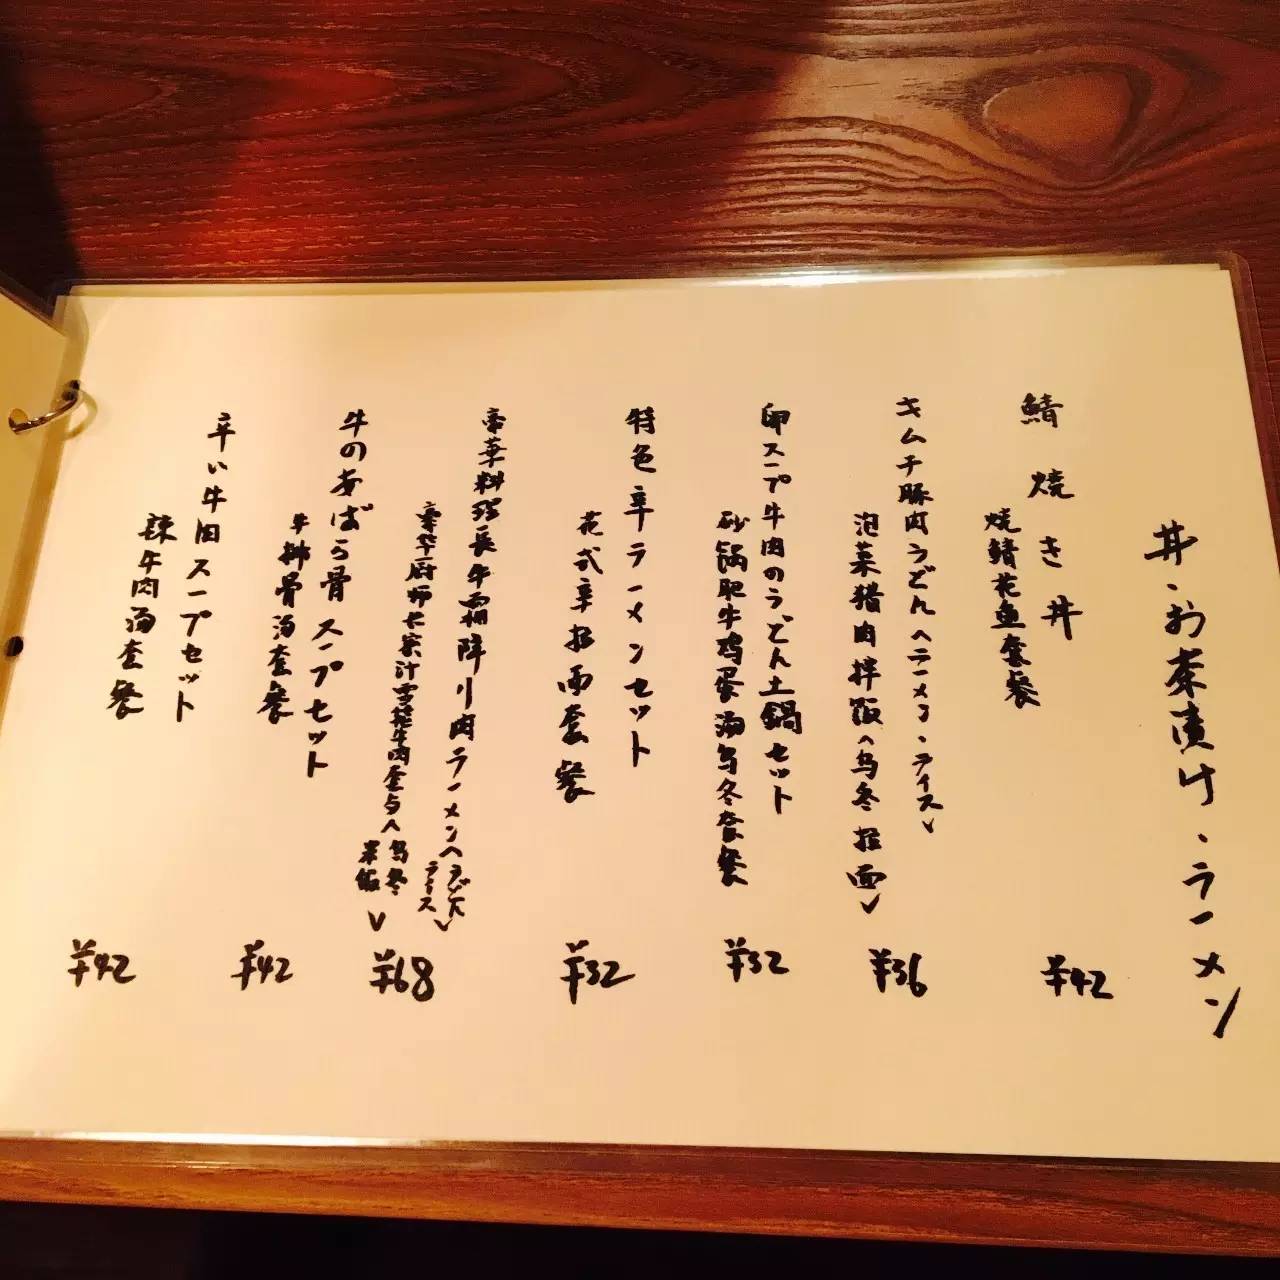 丼、お茶漬け、ラーメン
鯖焼き丼
焼鯖花魚套餐
¥42
キムチ豚肉うどん(ラーメン、ライス)
泡菜猪肉拌饭(乌冬拉面)
¥36
卵スープ牛肉のうどん土鍋セット
砂锅肥牛鸡蛋汤乌冬套餐
¥32
特色辛ラーメンセット
花式辛拉面套餐
¥32
豪華料理長牛霜降り肉ラーメン(うどん ライス)
豪华厨师长浓汁雪花牛肉套与(乌冬 米饭)
¥68
牛のあばら骨スープセット
牛排骨汤套餐
¥42
辛い牛肉スープセット
辣牛肉汤套餐
¥42